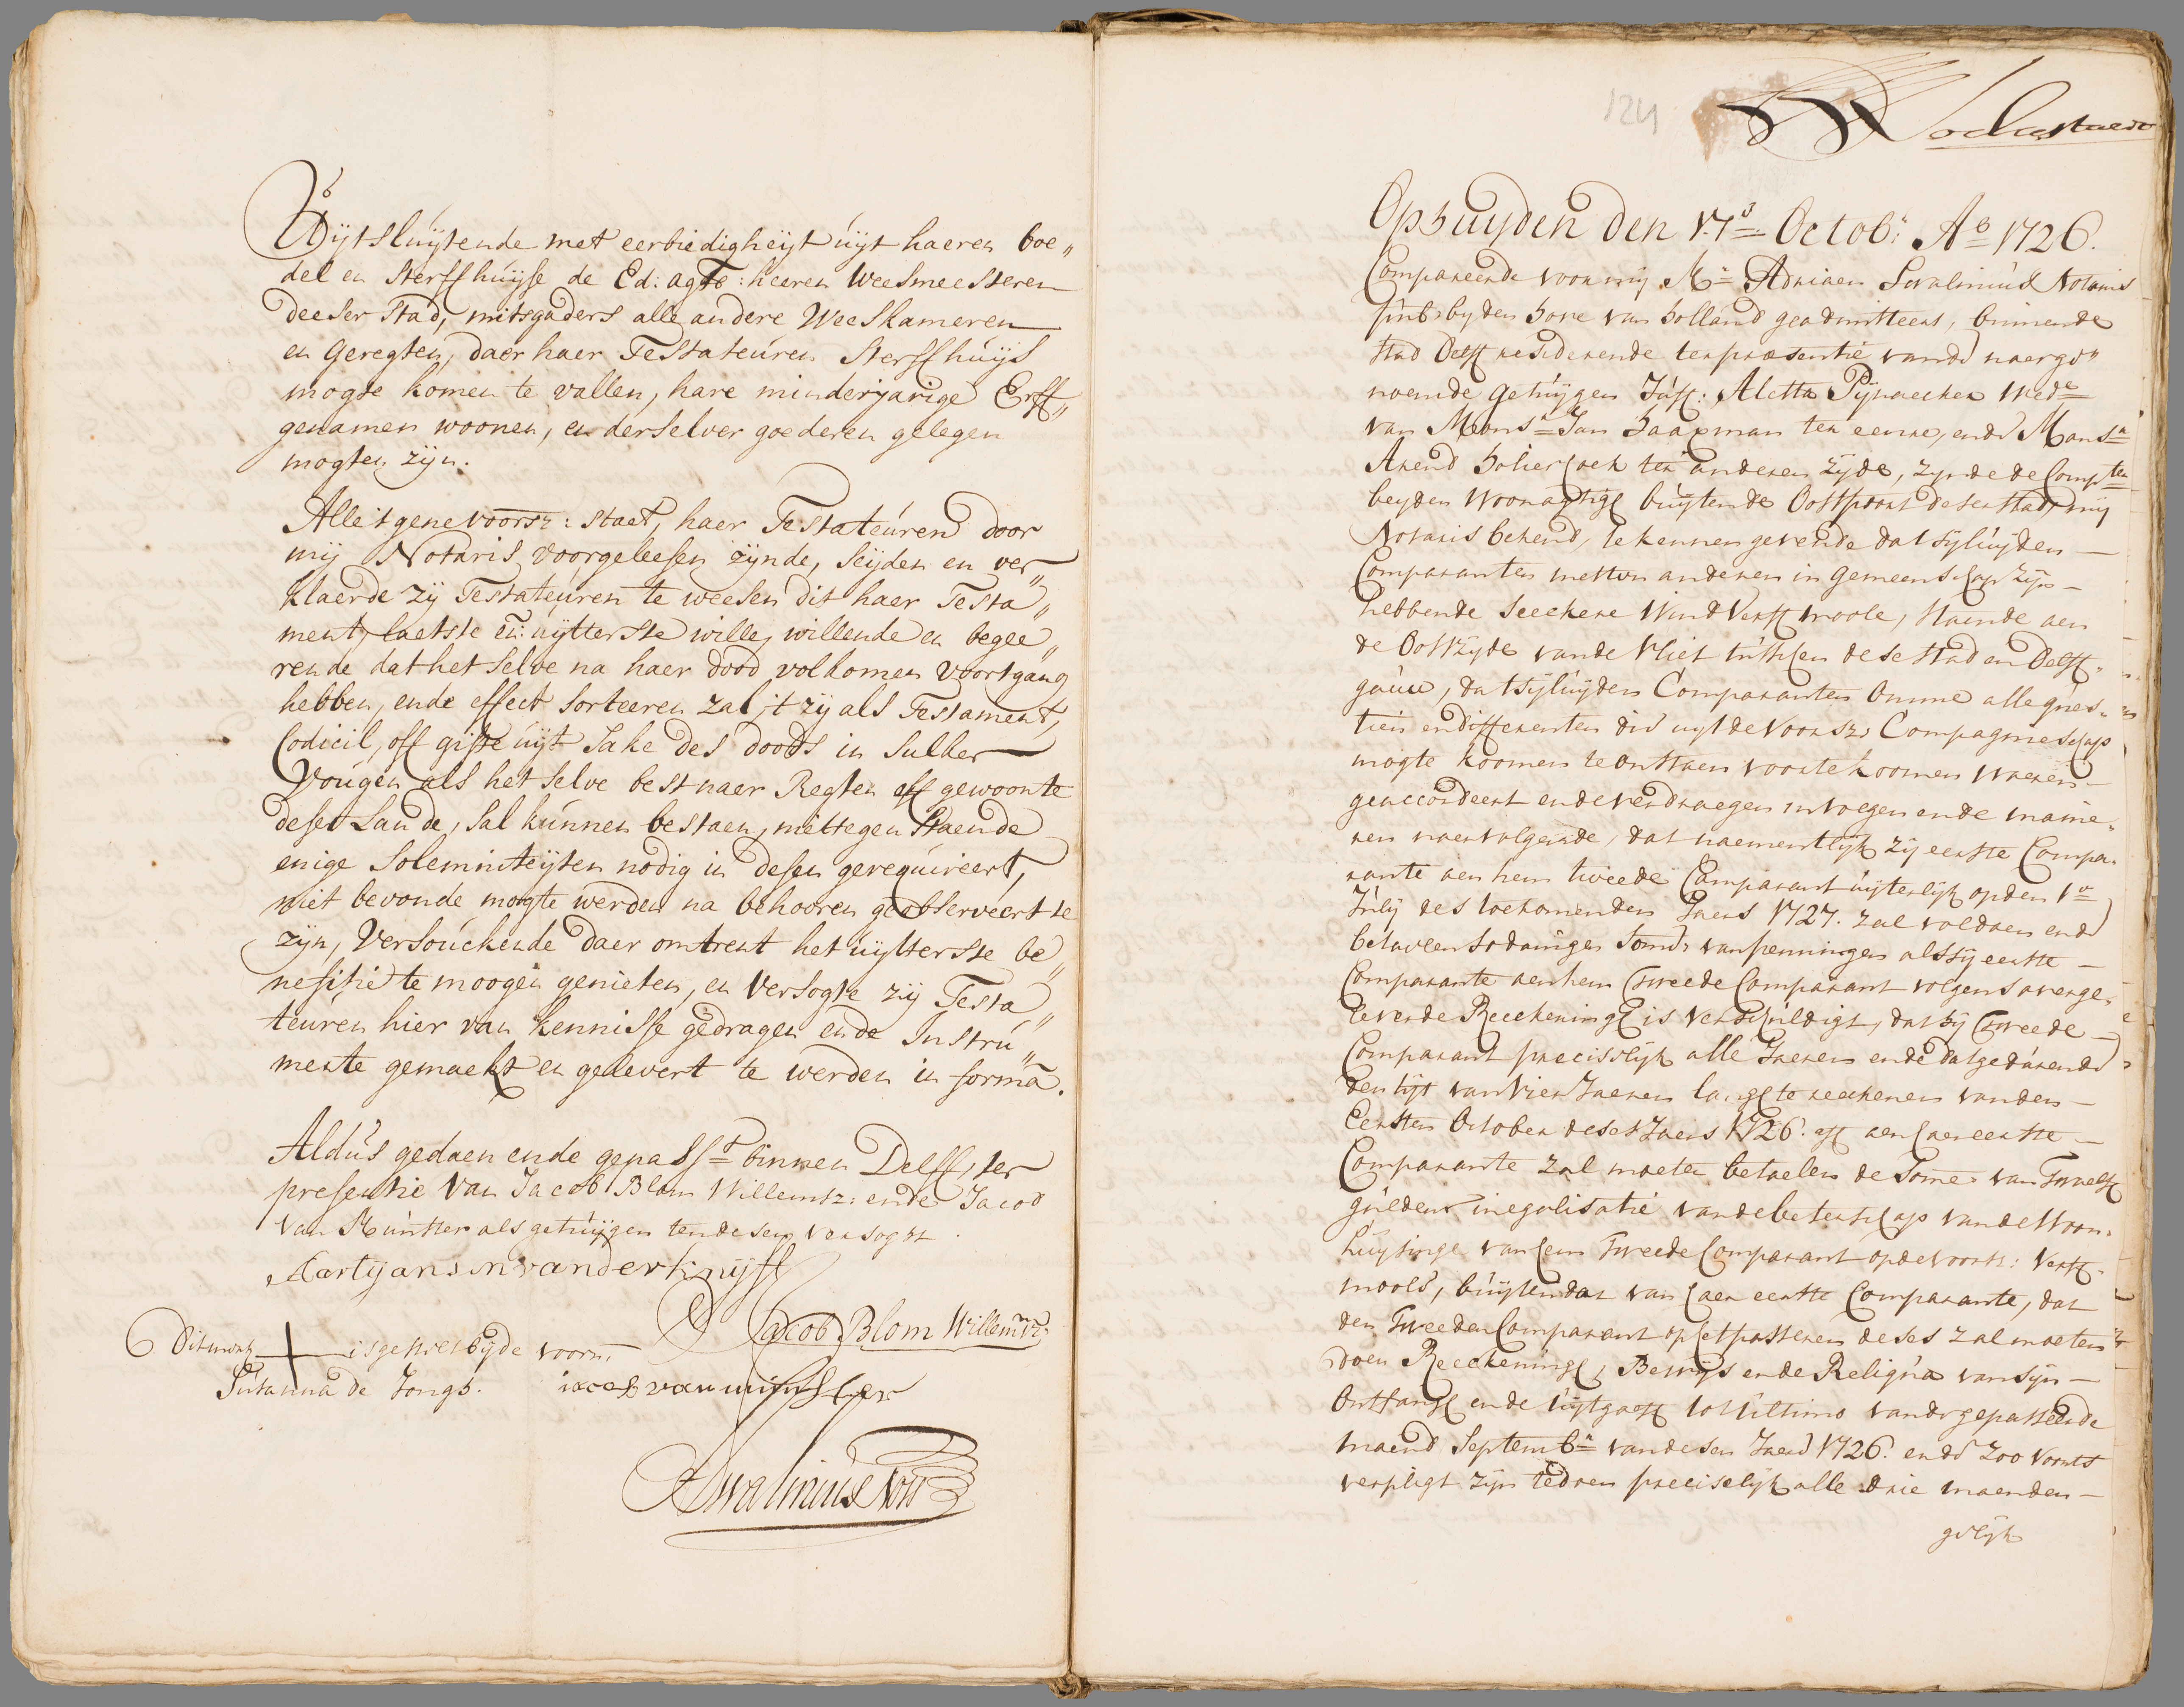 Uijtsluijtende met eerbiedigheijt uijt haeren boe„
del en sterffhuijse de Ed: agtb: heeren Weesmeesteren
deeser stad, mitsgaders alle andere Weeskameren
en geregten, daer haer Testateuren sterffhuijs
mogte komen te vallen, hare minderjarige Erff„
genamen woonen, en derselver goederen gelegen
mogten zijn.
Alle 't gene voorsz: staet, haer Testateuren door
mij Notaris voorgeleesen zijnde, seijden en ver„
klaerde zij Testateuren te weesen dit haer Testa„
ment, laetste en: uijtterste wille, willende en begee„
rende dat het selve na haer dood volkomen voortgang
hebben, ende effect sorteeren zal, 't zij als Testament,
Codicil, off gifte uijt sake des doods in sulker
vougen als het selve best naer Regten off gewoonte
deser Lande, sal kunnen bestaen, niettegenstaende
enige solemniteijten nodig in desen gerequireert,
niet bevonde mogte werden na behooren geobserveert te
zijn, Versouckende daer omtrent het uijtterste be„
nefitie te moogen genieten, en versogte zij Testa„
teuren hier van kennisse gedragen ende Instru„
mente gemaekt en gelevert te werden in forma.
Aldus gedaen ende gepasst binnen Delff, ter
presentie van Jacob Blom Willemsz: ende Jacob
van Munster als getuijgen ten desen versogt.
Aartyansn vanderknijff
Jacob Blom Willemsz:
Dit merk is gestelt bij de voorn:
Susanna de Jongh.
iacob van munster
ASwalmius Nots
124
Op huijden den 17e Octobr Ao 1726.
Compareerde voor mij Mr Adriaen Swalmius Notaris
publ: bij den hove van holland geadmitteert, binnen de
stad Delft resideerende ter presentie vande naerge„
noemde getuijgen Juff: Aletta Pijnacker Wede
van Monsr Jan Haaxman ter eenre, ende Monsr
Arend ter anderen zijde, zijnde de Compten
beijden woonagtigh buijten de Oostpoort deser stad mij
Notaris bekend, te kennen gevende dat sijluijden
Comparanten met den anderen in gemeenschap zijn
hebbende seeckere Wind Verff moole, staende aen
de Oostzijde vande Vliet tusschen dese stad en Delff„
gauw, dat sijluijden Comparanten omme alle ques„
tien en differenten die uijt de voorsz: Compagnieschap
mogte koomen te ontstaen voor te koomen waeren
geaccordeert ende verdraegen in voegen ende manie„
ren naervolgende, dat naementlijk zij eerste Compa„
rante aen hem tweede Comparant uijterlijk op den 1e
Julij des toekomenden Jaers 1727. zal voldoen ende
betaelen sodanigen somme van penningen als sij eerste
Comparante aen hem tweede Comparant volgens overge„
leverde Reeckeningh is verschuldigt, dat hij tweede
Comparant precisslijk alle Jaeren ende dat geduerende
den tijt van vier Jaeren langh te reeckenen van den
Eersten October deses Jaers 1726. aff aen haer eerste
Comparante zal moeten betaelen de somme van twaelff
guldens in egalisatie vande beterschap vande Woon„
huijsinge van hem tweede Comparant op de voorsz: Verff„
moole, buijten dat van haer eerste Comparante, dat
den tweeden Comparant op het passeren deses zal moeten
doen Reeckeningh, Bewijs ende Reliqua van sijn
Ontfangh ende uijtgaeff tot ultimo vande gepasseerde
maend Septembr vandesen Jaere 1726. ende zoo voorts
verpligt zijn te doen preciselijk alle drie maenden
gelijk